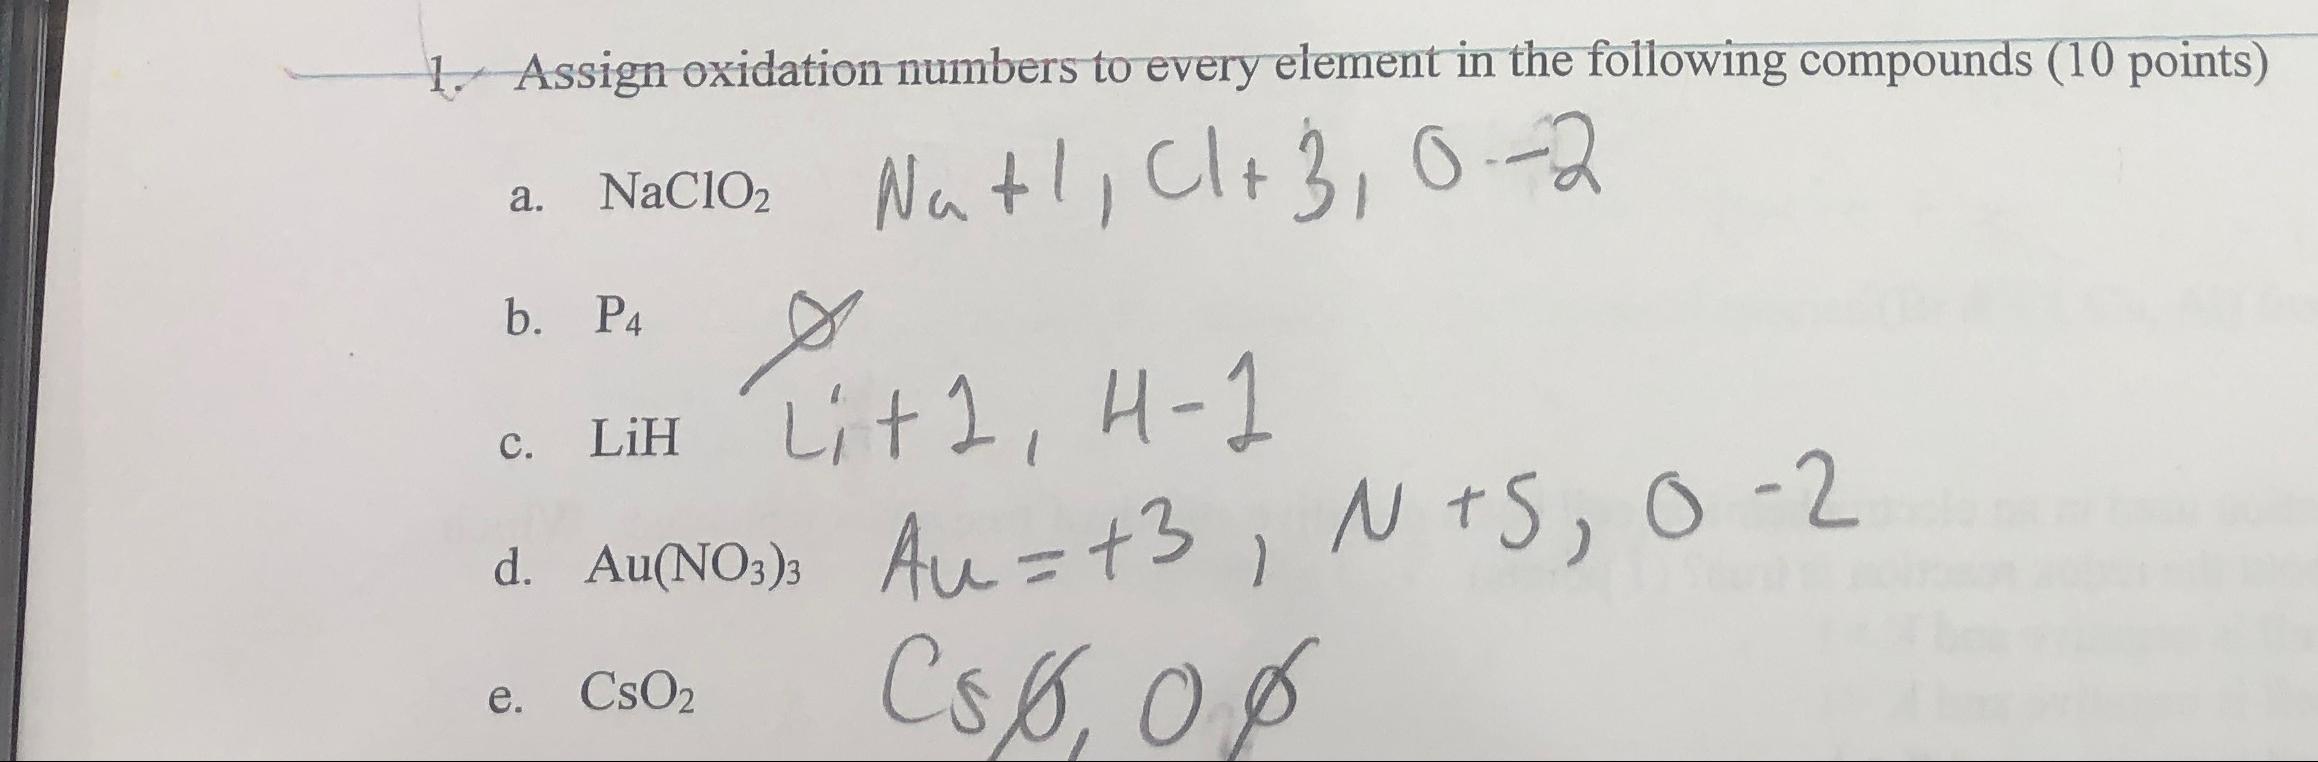 1. Assign oxidation numbers to every element in the following compounds (10 points)
a. NaClO₂ Na +1, Cl+3, O -2
b. P₄ Ø
c. LiH Li+1, H-1
d. Au(NO₃)₃ Au = +3, N +5, O -2
e. CsO₂ Cs Ø, O Ø